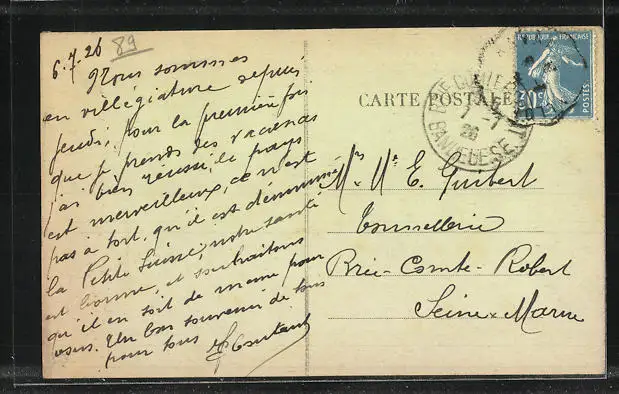 6.7.26
89
Nous sommes
en villégiature depuis
jeudi, pour la première fois
que je prends des vacances
j'ai bien réussi, le pays
est merveilleux, ce n'est
pas à tort, qu'il est dénommé
la Petite Suisse, notre santé
est bonne, et souhaitons
qu'il en soit de meme pour
vous. Un bon souvenir de tous
pour tous
CARTE POSTALE
REPUBLIQUE FRANÇAISE
POSTES
30c
BRIE COMTE
7-7
26
Mr Me E. Guibert
Tonnellerie
Brie-Comte-Robert
Seine & Marne